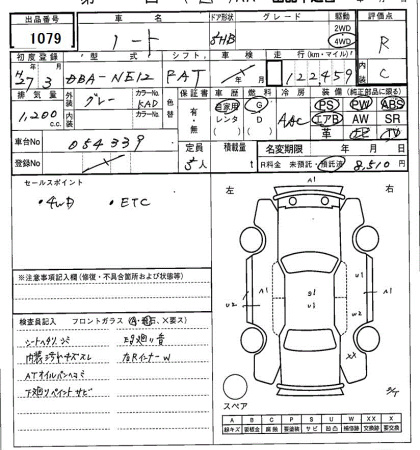 出品番号 車名 ドア形状 グレード 駆動 評価点
1079 ノート 5HB 2WD 4WD R
初度登録 型式 シフト 車検 走行(km・マイル) 内装
H27年3月 DBA-NE12 FAT 年 月 122,459 C
排気量 外装 グレー カラーNo. KAD 色替 保証書 有・無 車歴 自家用 レンタ 燃料 G D 冷房 AAC 装備(純正部品に限る)
1,200 c.c. 内装 カラーNo.
PS PW ABS
エアB AW SR
革 TV
車台No 054339 定員 5人 積載量 t 名変期限 年 月 日
登録No R料金 未預託・預託済 8,510円
セールスポイント
・4WD ・ETC
左 右
※注意事項記入欄(修復・不具合箇所および状態等)
検査員記入 フロントガラス ×要ス)
シートヘタリ シミ
内装ヨゴレキズスレ 右RインナーW
ATオイルパンヘコミ
下廻りペイントサビ
A1
U2 A1 S1 A1 W2
U1
XX
スペア
A B C P S U W XX X
線キズ 腐蝕 要塗装 サビ 凹凸 補修跡 交換跡 要交換